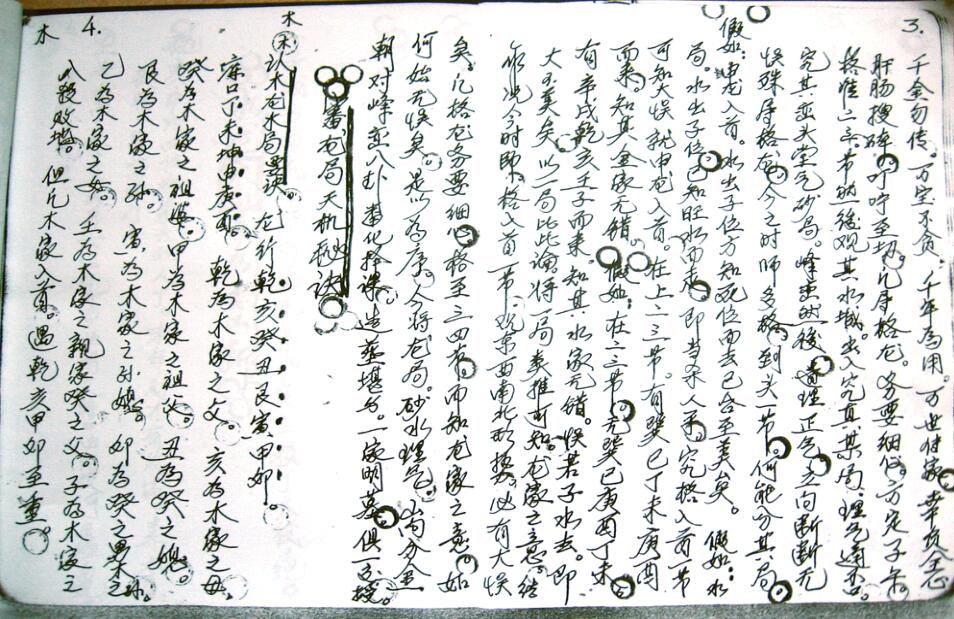 3.
千金勿传。万宝不负。千年为用。万世付家
肝肠搜碎。叮咛至切。凡序格龙。务要细心。方定子午
格准二字。节然后观其水城。出入究真其局。理气通否
究其峦头堂气砂局。峰峦然后道理正气立向断断无
误殊。序格龙今之时师多格到头一节何能分其局
假如:申龙入首。水出子位方知死位而去已合至美矣。假如:水
局。水出子位已知旺水而去。即当杀人未。究格入首一节
可知大误就申龙入首。在上二三节。有巽巳丁未庚酉
而来。知其金家无错。假如:在二三节无巽巳庚酉丁未
有辛戌乾亥壬子而来知其水家无错。误若子水去。即
大至美矣以一局比此论。将一局类推可知。龙家之意。结
今时师。格入首一节。观东西南北形势。必有大误
矣。凡格龙务要细心格至三四节而知龙家之意。如
何始无误矣。是以为序。今将龙局。砂水理气。山向分金
朝对峰峦八卦
造葬堪舆。一家明葬俱一

番龙局天机秘诀
木
木认木龙木局要诀
龙行乾亥癸丑艮寅甲卯
丁未坤申庚酉 乾为木家之父 亥为木家之母
癸为木家之祖婆甲为木家之祖父 丑为癸之媳
艮为木家之孙 寅为木家之孙媳。卯为癸之男
乙为木家之女。壬为木家之亲家癸之父。子为木家之
八煞败塔。但凡木家入首。遇乾亥甲卯至重。
4.
木